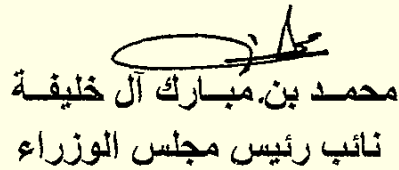 محمـد بن مبـارك آل خليفـة
نائب رئيس مجلس الوزراء